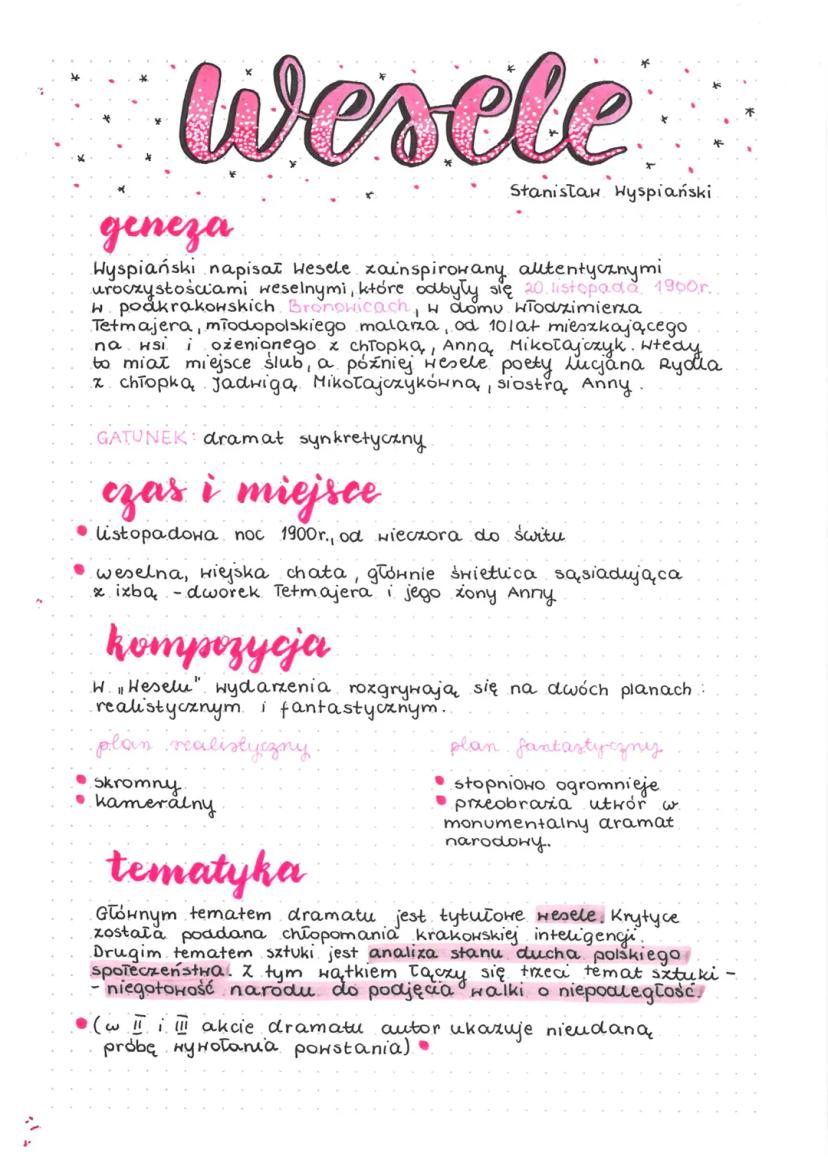 wesele
Stanisław Wyspiański
geneza
Wyspiański napisał Wesele zainspirowany autentycznymi
uroczystościami weselnymi, które odbyły się 20 listopada 1900r.
w podkrakowskich Bronowicach, w domu Włodzimierza
Tetmajera, młodopolskiego malarza, od 10 lat mieszkającego
na wsi i ożenionego z chłopką, Anną Mikołajczyk. Wtedy
to miał miejsce ślub, a później wesele poety Lucjana Rydla
z chłopką Jadwigą Mikołajczykówną, siostrą Anny.
GATUNEK: dramat synkretyczny
czas i miejsce
• listopadowa noc 1900r., od wieczora do świtu
• weselna, wiejska chata, głównie świetlica sąsiadująca
z izbą - dworek Tetmajera i jego żony Anny
kompozycja
W „Weselu" wydarzenia rozgrywają się na dwóch planach:
realistycznym i fantastycznym.
plan realistyczny
• skromny
• kameralny
plan fantastyczny
• stopniowo ogromnieje
• przeobraża utwór w
monumentalny dramat
narodowy.
tematyka
Głównym tematem dramatu jest tytułowe wesele. Krytyce
została poddana chłopomania krakowskiej inteligencji.
Drugim tematem sztuki jest analiza stanu ducha polskiego
społeczeństwa. Z tym wątkiem łączy się trzeci temat sztuki -
- niegotowość narodu do podjęcia walki o niepodległość.
• (w II i III akcie dramatu autor ukazuje nieudaną
próbę wywołania powstania) •